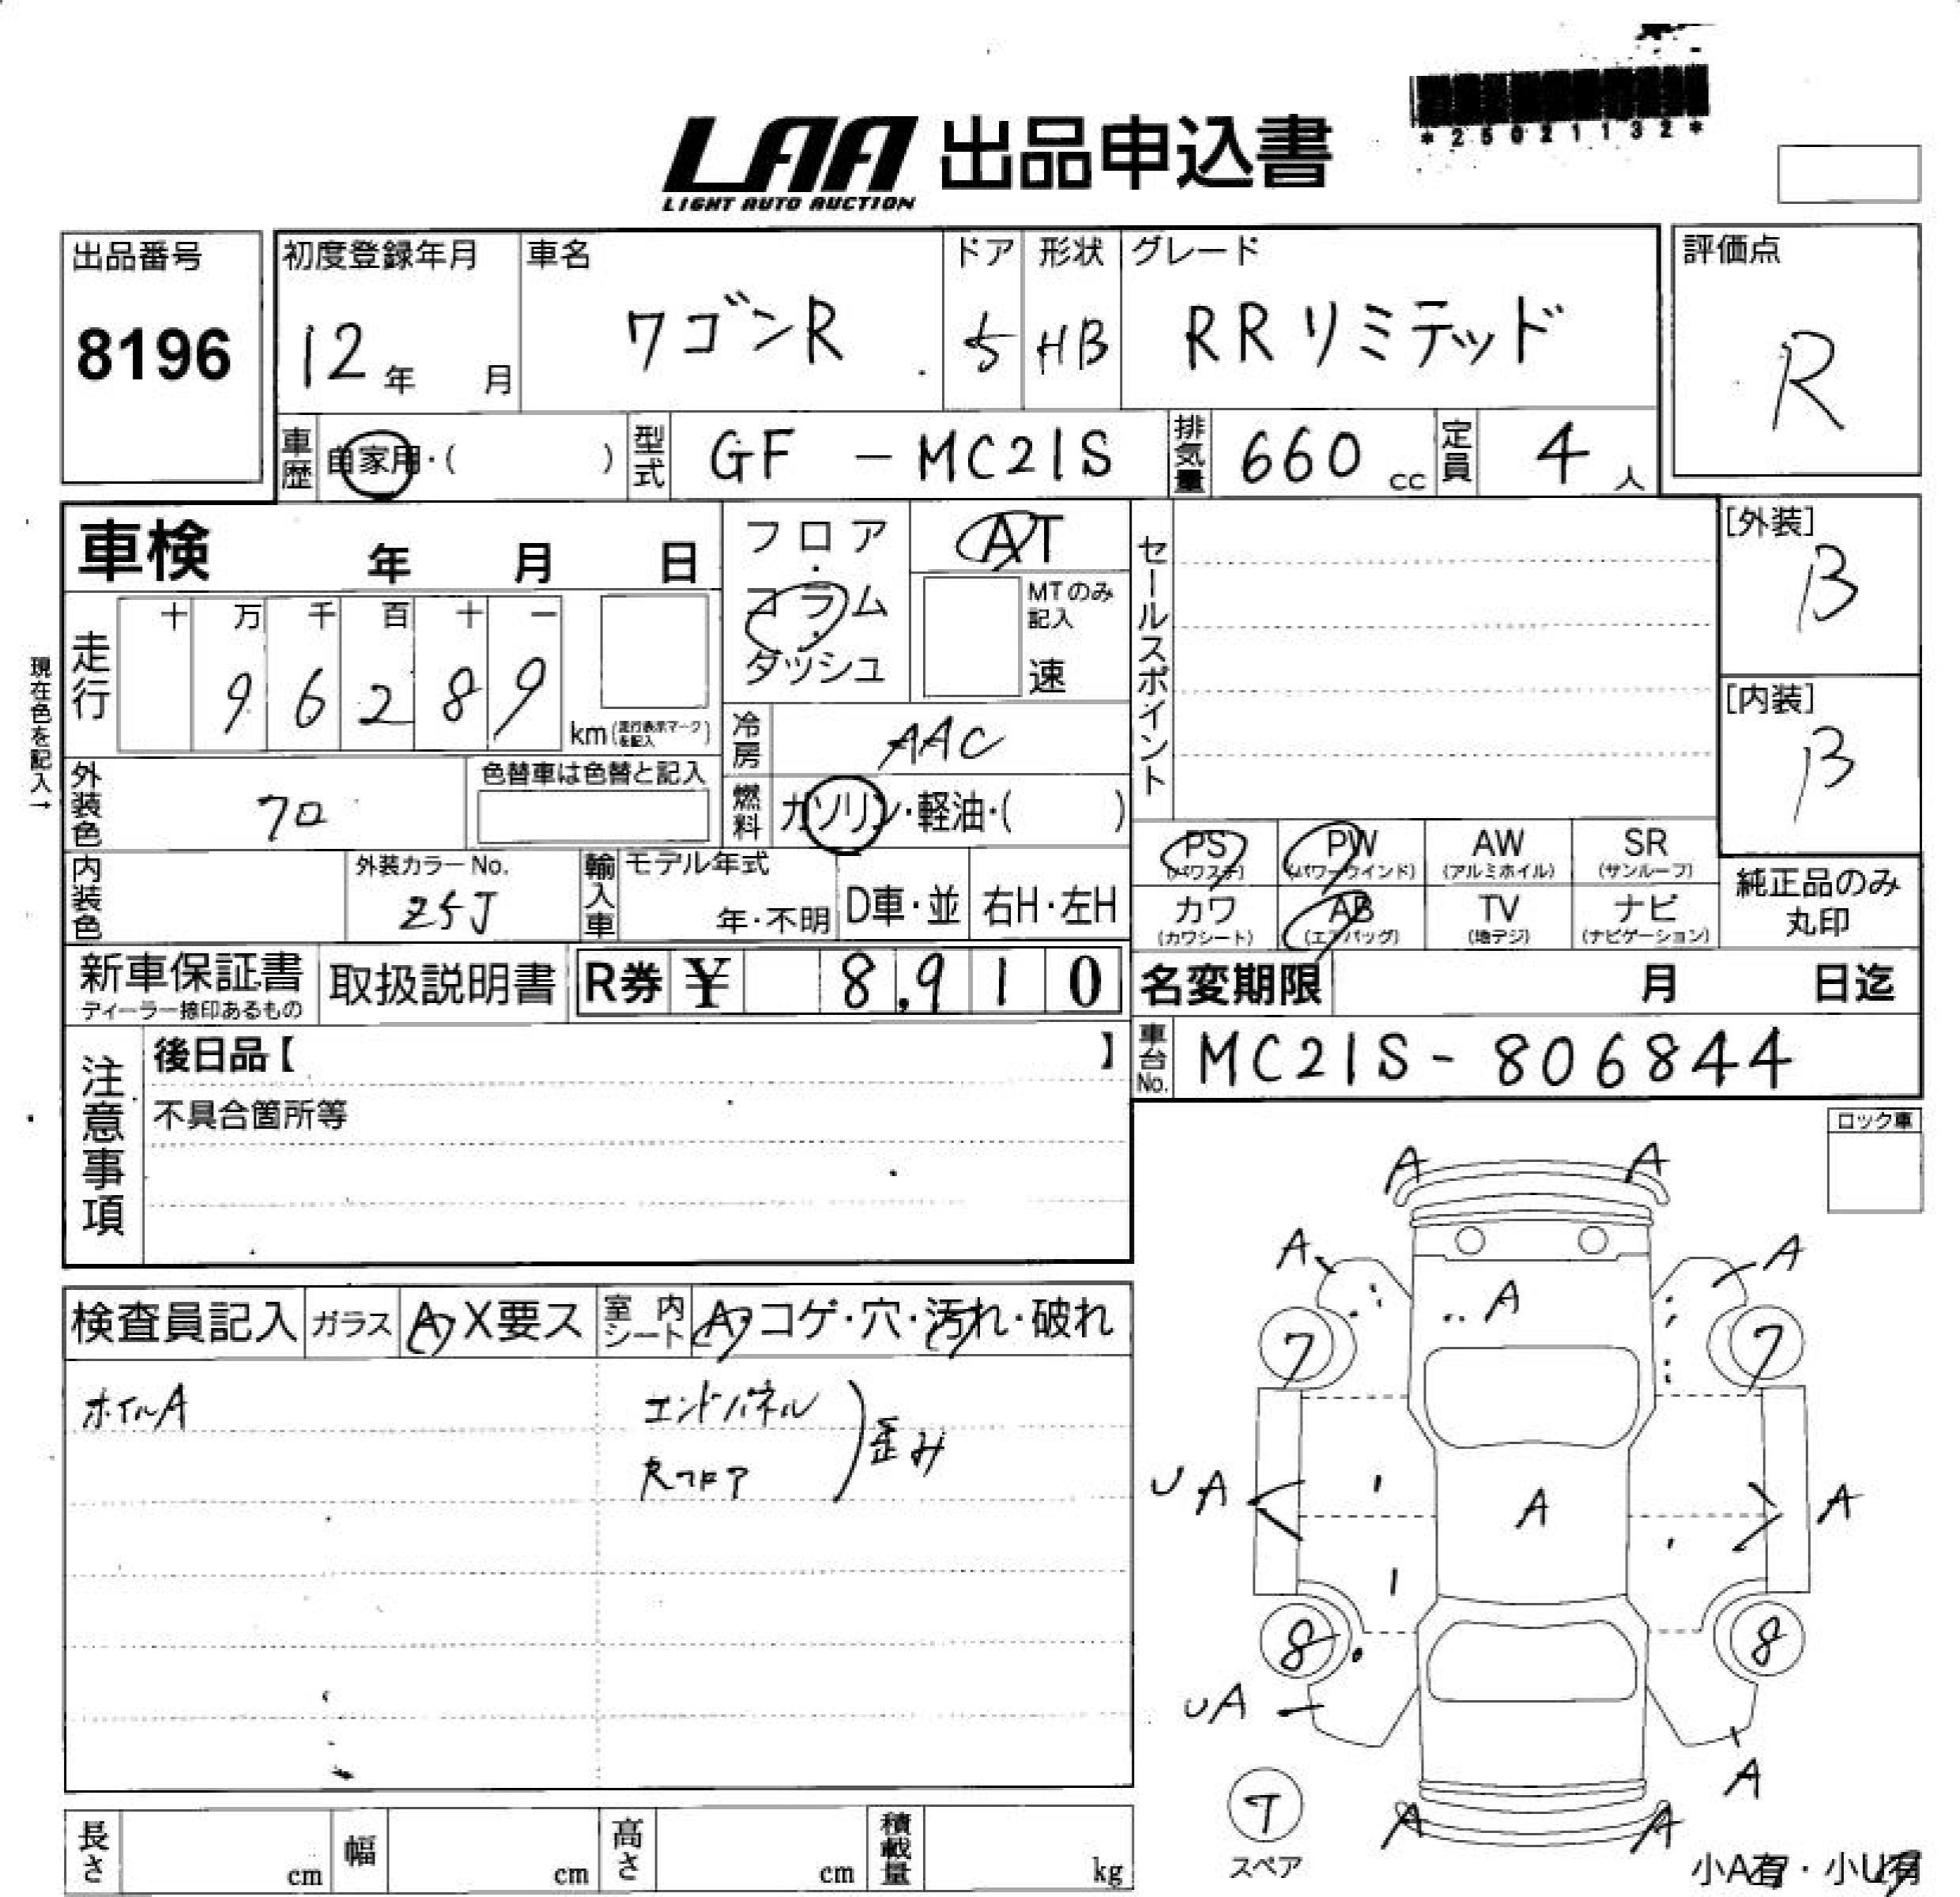 *25021132*
LAA 出品申込書
LIGHT AUTO AUCTION
出品番号
8196
初度登録年月
12年 月
車名
ワゴンR
ドア
5
形状
HB
グレード
RRリミテッド
評価点
R
車歴 自家用・( )
型式 GF - MC21S
排気量 660 cc
定員 4 人
車検 年 月 日
フロア・コラム・ダッシュ
AT
MTのみ記入
速
セールスポイント
[外装]
B
[内装]
B
現在色を記入→
走行
十 万 千 百 十 一
9 6 2 8 9
km(走行表示マークを記入)
冷房 AAC
燃料 ガソリン・軽油・( )
外装色 クロ
色替車は色替と記入
PS (パワステ)
PW (パワーウインド)
AW (アルミホイル)
SR (サンルーフ)
カワ (カワシート)
AB (エアバッグ)
TV (地デジ)
ナビ (ナビゲーション)
純正品のみ丸印
内装色
外装カラーNo.
Z5J
輸入車
モデル年式
年・不明
D車・並
右H・左H
新車保証書
ディーラー捺印あるもの
取扱説明書
R券 ¥ 8,910
名変期限 月 日迄
車台No. MC21S - 806844
注意事項
後日品【 】
不具合箇所等
ロック車
検査員記入
ガラス A・X要ス
室内シート A・コゲ・穴・汚れ・破れ
ホイルA
エンドパネル
Rフロア
歪み
A A
A A
A
7 7
UA A A
8 8
UA
A
A A
T
スペア
小A有・小U有
長さ cm
幅 cm
高さ cm
積載量 kg